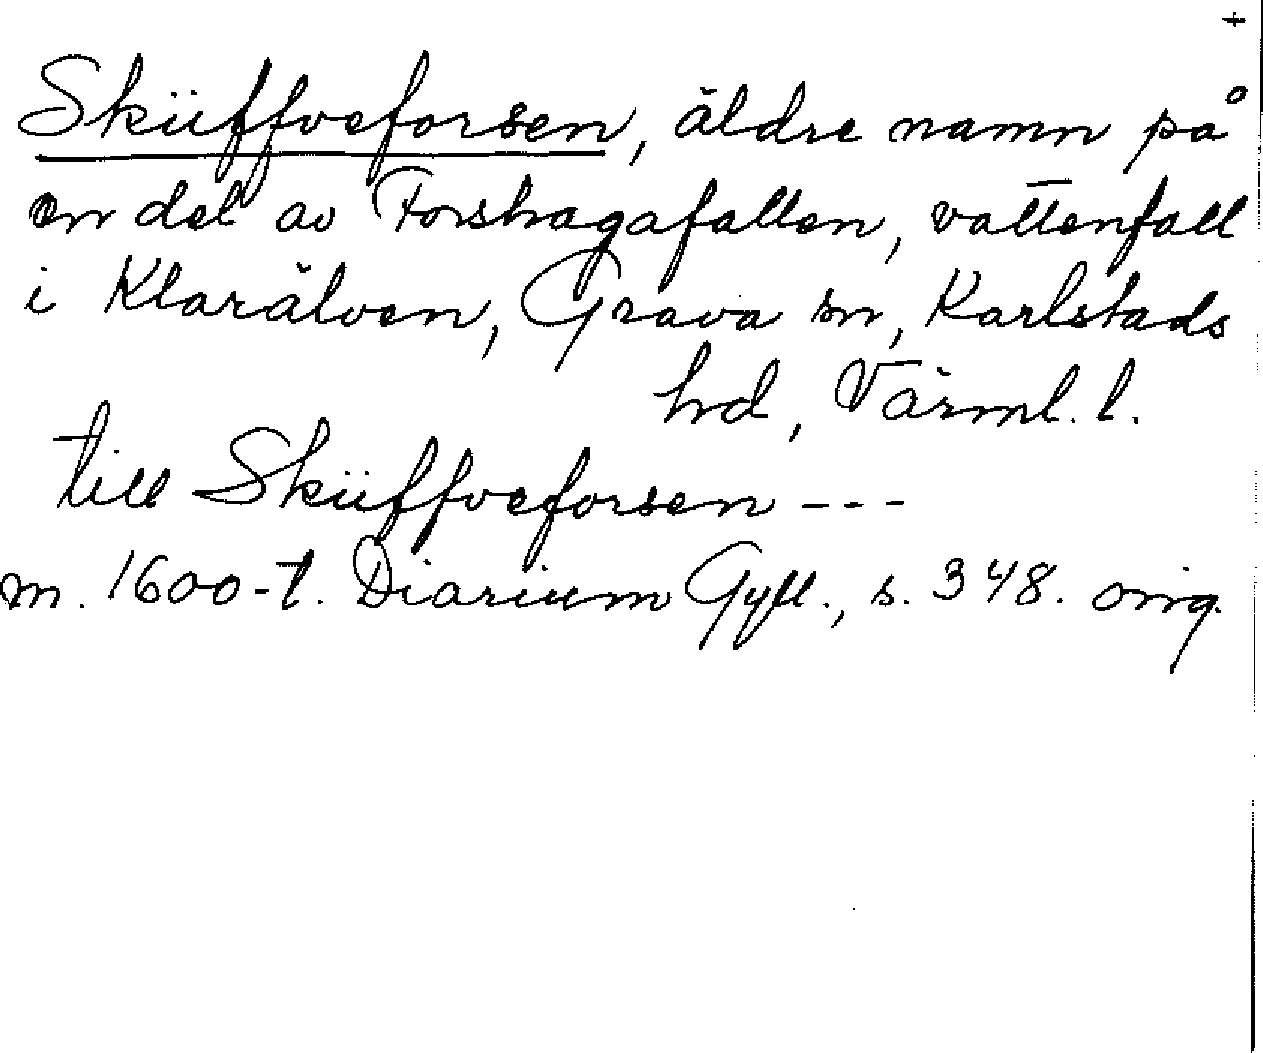 +
Sküffveforsen, äldre namn på
en del av Forshagafallen, vattenfall
i Klarälven, Grava sn, Karlstads
hd, Värml. l.
till Sküffveforsen ---
m. 1600-t. Diarium Gyll., s. 348. orig.